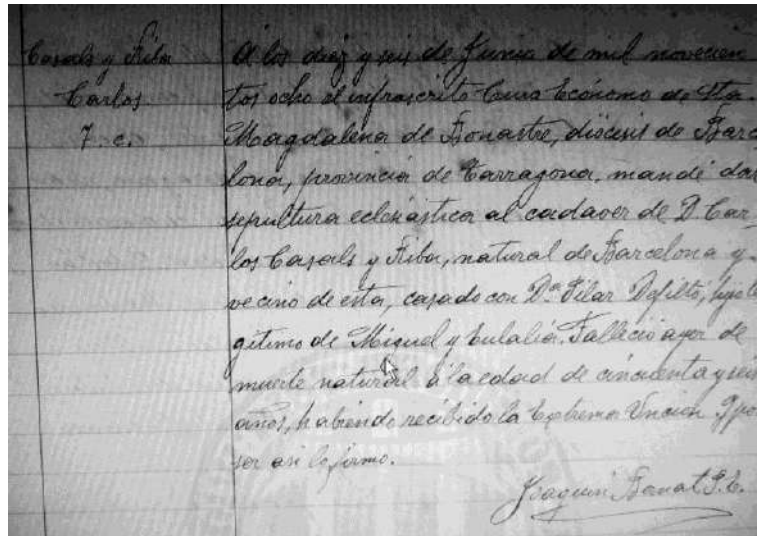 Casals y Riba
Carlos
7. c.
A los diez y seis de Junio de mil novecien
tos ocho el infrascrito Cura Ecónomo de Sta.
Magdalena de Bonastre, diócesis de Barc
lona, provincia de Tarragona, mandé dar
sepultura eclesiástica al cadaver de D. Car-
los Casals y Riba, natural de Barcelona y
vecino de esta, casado con Dª Pilar Defilló, hijo le
gitimo de Miguel y Eulalia. Falleció ayer de
muerte natural á la edad de cincuenta y seis
años, habiendo recibido la Extrema Unción. Y po
ser asi lo firmo.
Joaquin Bonat P. C.